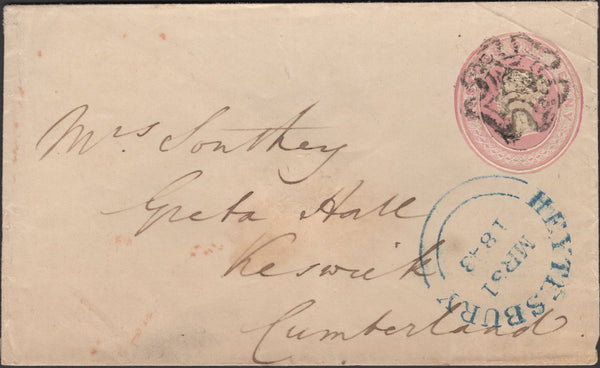 Mrs Southey
Greta Hall
Keswick
Cumberland.
HEYTESBURY
MR31
1843